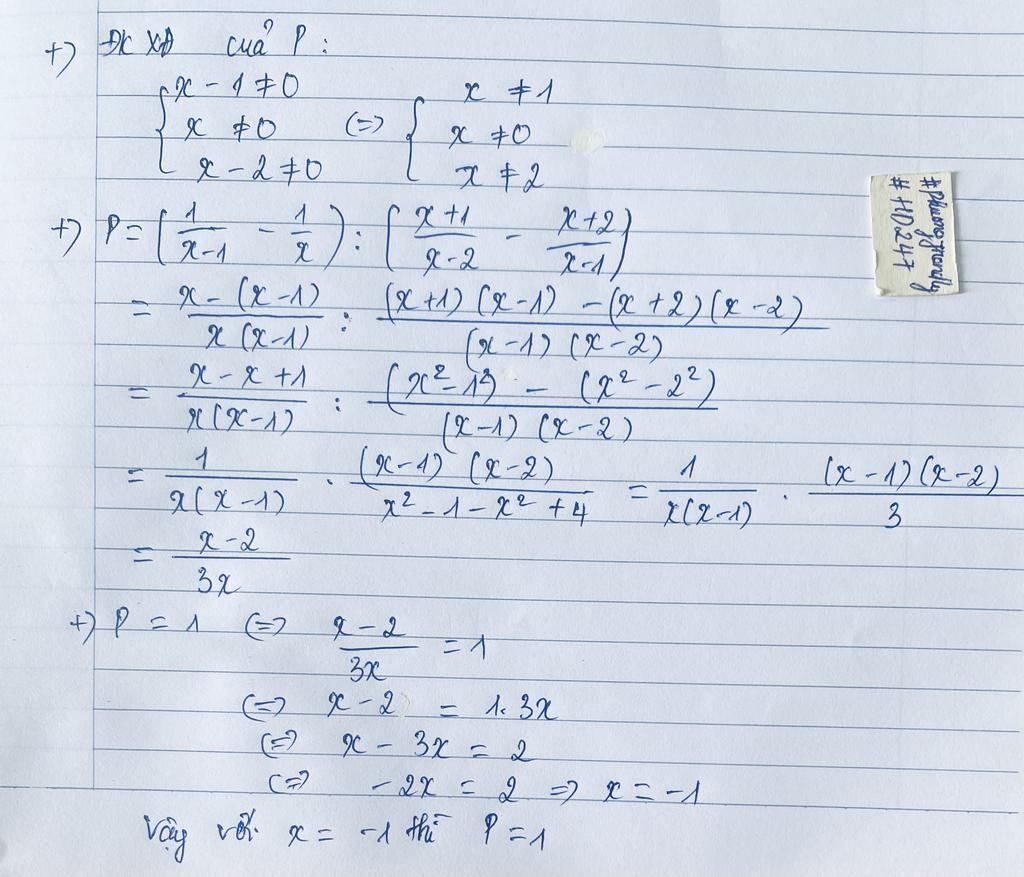 +) ĐK XĐ của P :
{ x - 1 ≠ 0 { x ≠ 1
{ x ≠ 0 (=) { x ≠ 0
{ x - 2 ≠ 0 { x ≠ 2
+) P = (1/(x-1) - 1/x) : ((x+1)/(x-2) - (x+2)/(x-1))
= (x - (x-1))/(x(x-1)) : ((x+1)(x-1) - (x+2)(x-2))/((x-1)(x-2))
= (x - x + 1)/(x(x-1)) : ((x² - 1²) - (x² - 2²))/((x-1)(x-2))
= 1/(x(x-1)) . ((x-1)(x-2))/(x² - 1 - x² + 4) = 1/(x(x-1)) . ((x-1)(x-2))/3
= (x-2)/(3x)
+) P = 1 (=) (x-2)/(3x) = 1
(=) x - 2 = 1. 3x
(=) x - 3x = 2
(=) - 2x = 2 => x = -1
Vậy với x = -1 thì P = 1
#HD247